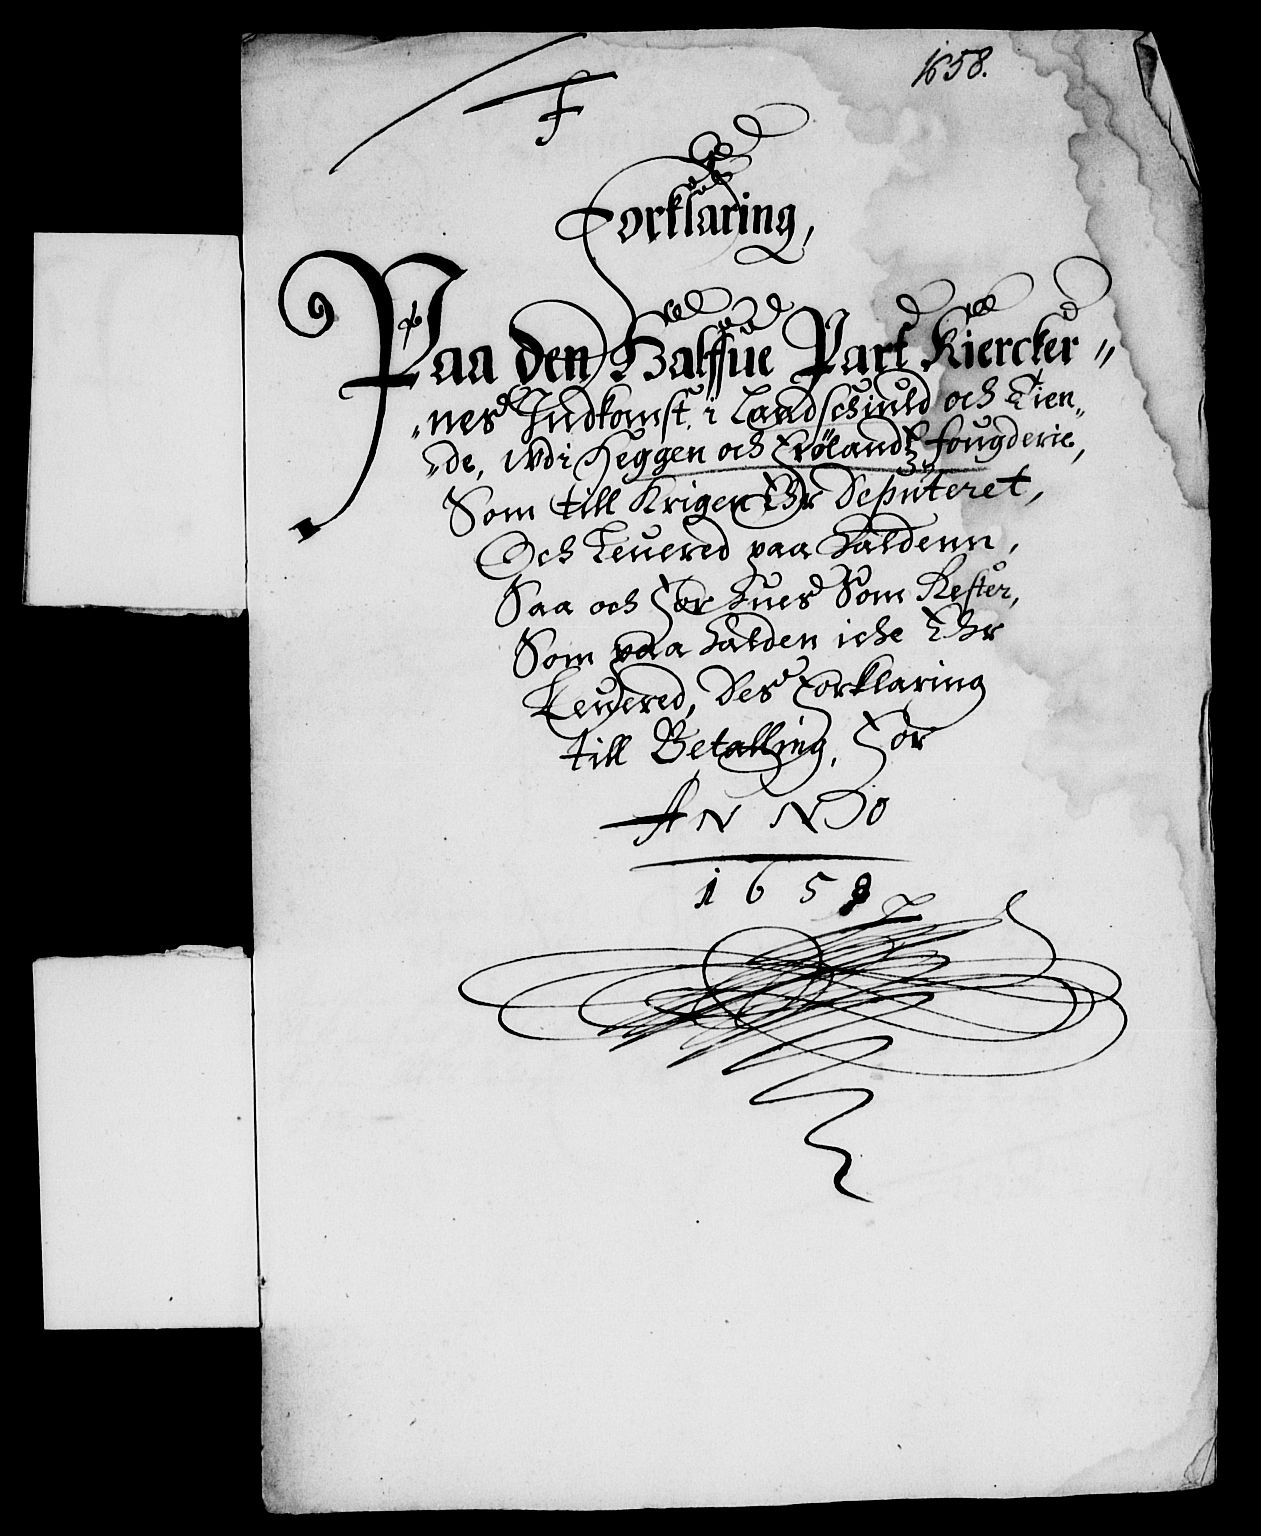 1658.
F
Forklaring,
Paa den Halffue Part Kiercker
nes Indkomst, i Landschiuld och Tien
de, udi Heggen och Frølandtz fougderie,
Som till Krigen Ehr Deputeret,
Och Leuered paa Halden,
Saa och For hues Som Rester,
Som paa Halden iche Ehr
Leuered, Des Forklaring
till Betalling, For
ANNO
1658